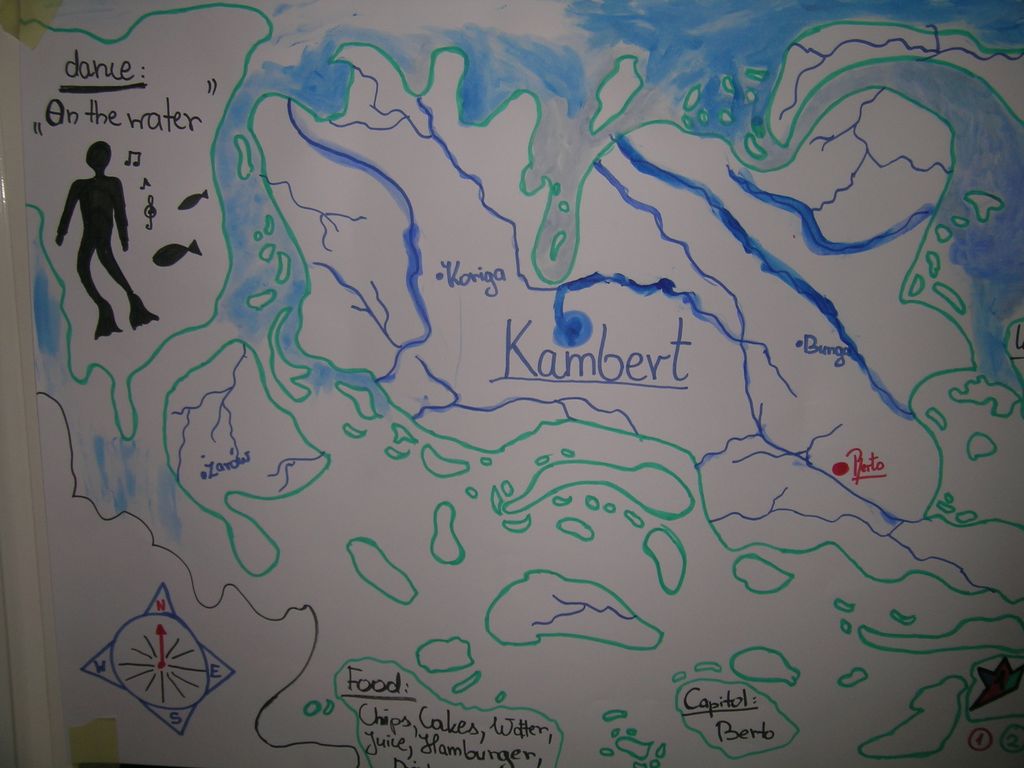 dance:
"On the water"
Koriga
Kambert
Bunga
Żarów
Berto
N
W
E
S
Food:
Chips, Cakes, Watter,
Juice, Hamburger,
Capitol:
Berto
1 2